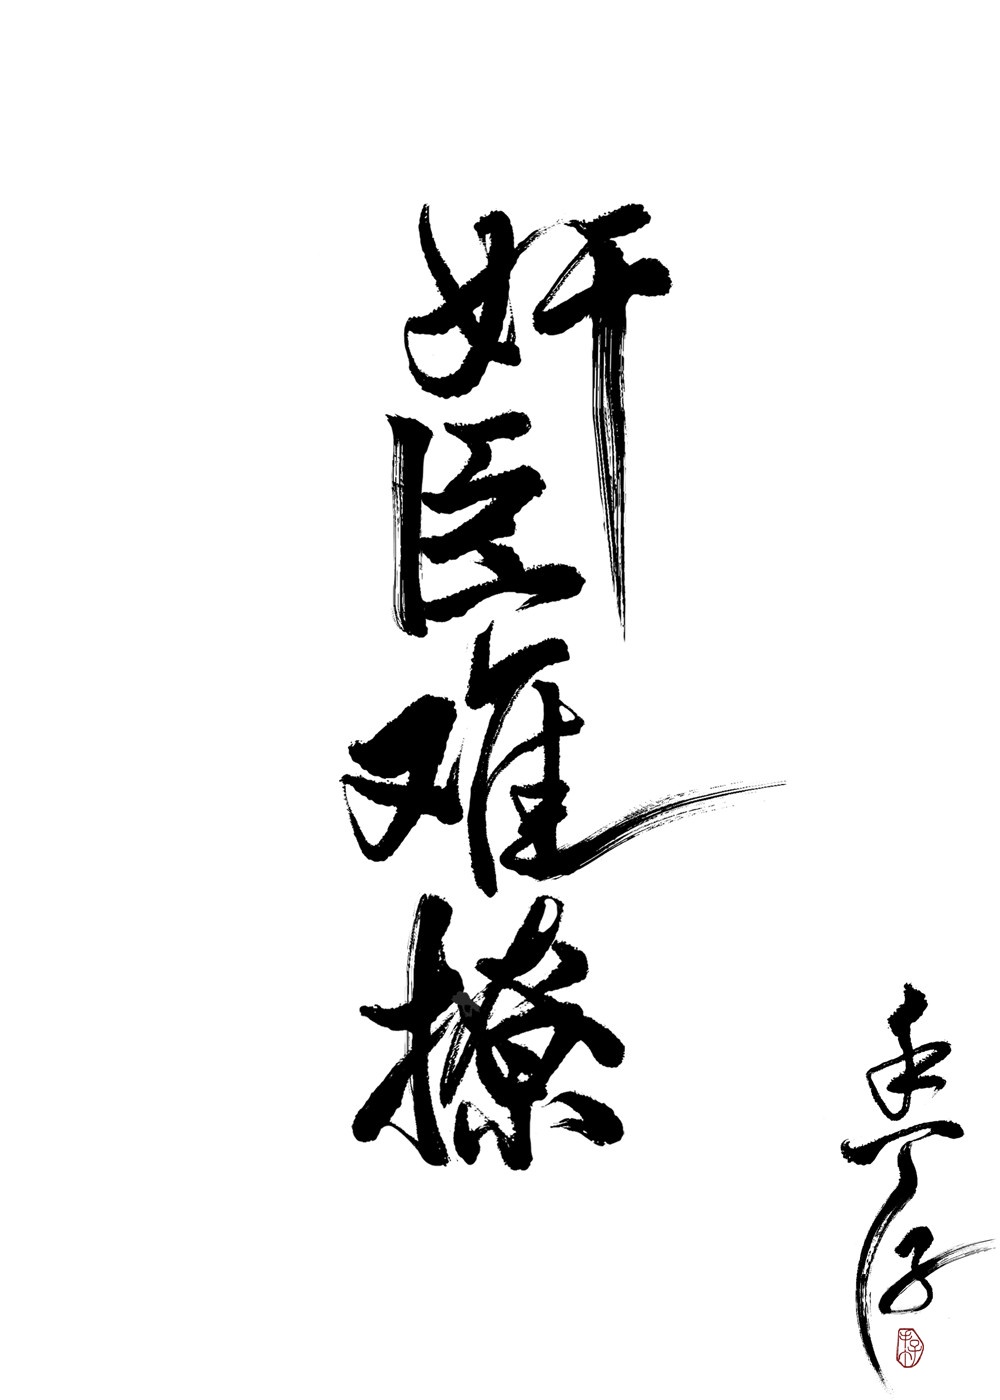 奸臣难撩